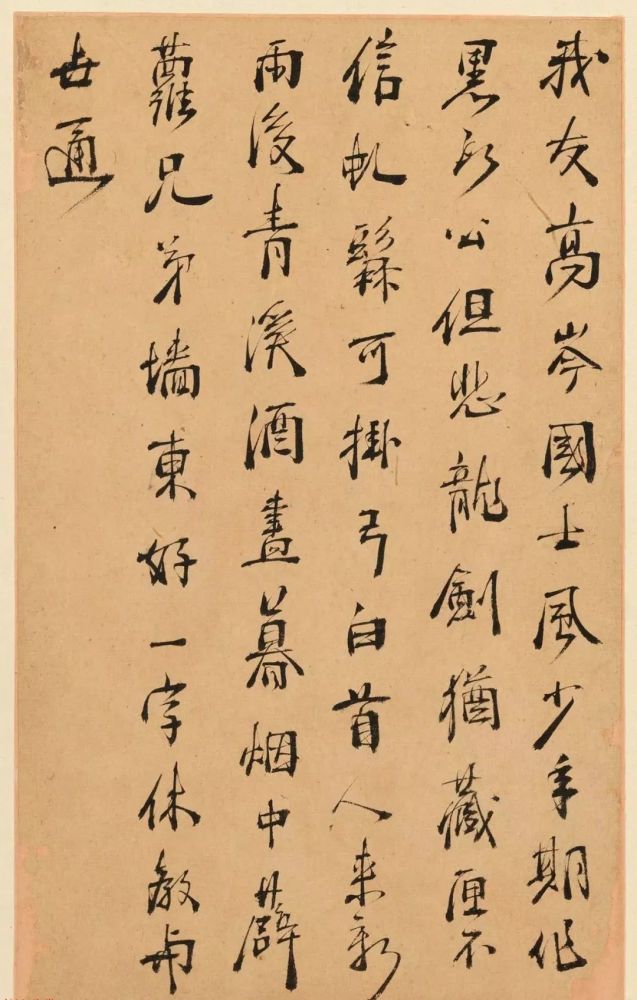 我友高岑國士風少年期作
黑頭公但悲龍劍猶藏匣不
信虬鬆可掛弓白首人來新
雨後青溪酒畫暮烟中薜
蘿兄弟墻東好一字休教与
世通